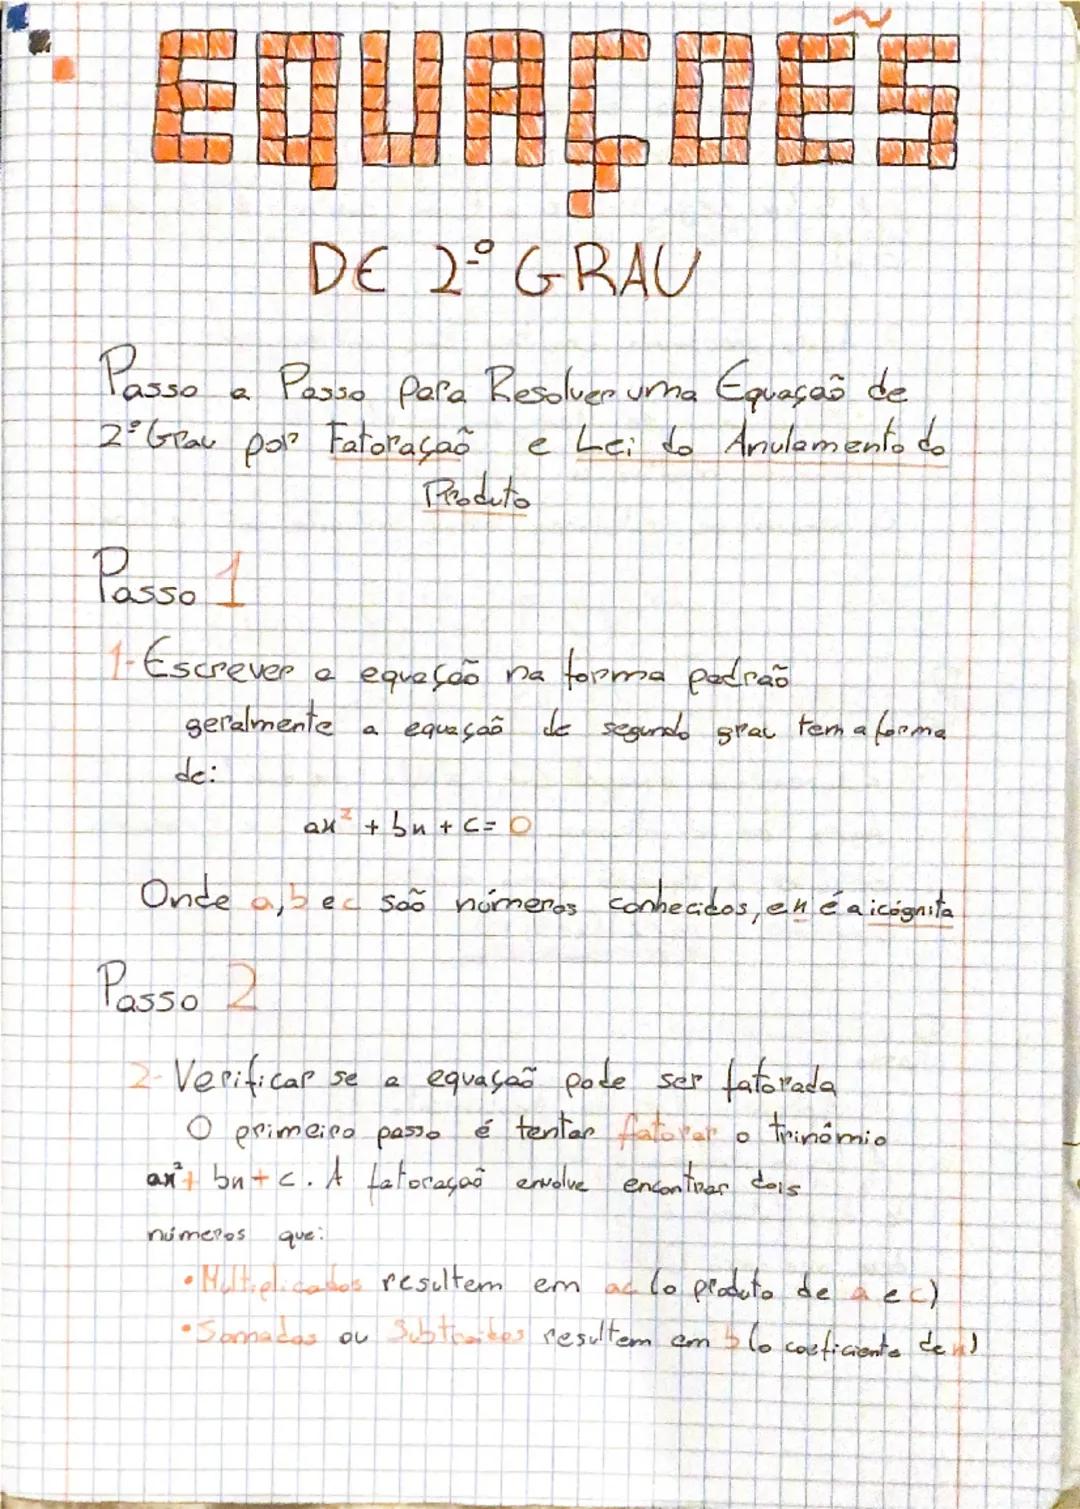 EQUAÇÕES
DE 2º GRAU
Passo a Passo para Resolver uma Equação de
2º Grau por Fatoração e Lei do Anulamento do
Produto
Passo 1
1-Escrever a equação na forma padrão
geralmente a equação de segundo grau tem a forma
de:
ax² + bx + c = 0
Onde a, b e c são números conhecidos, e x é a icógnita
Passo 2
2-Verificar se a equação pode ser fatorada
O primeiro passo é tentar fatorar o trinômio
ax² + bx + c. A fatoração envolve encontrar dois
números que:
• Multiplicados resultem em ac (o produto de a e c)
• Somados ou Subtraídos resultem em b (o coeficiente de x)